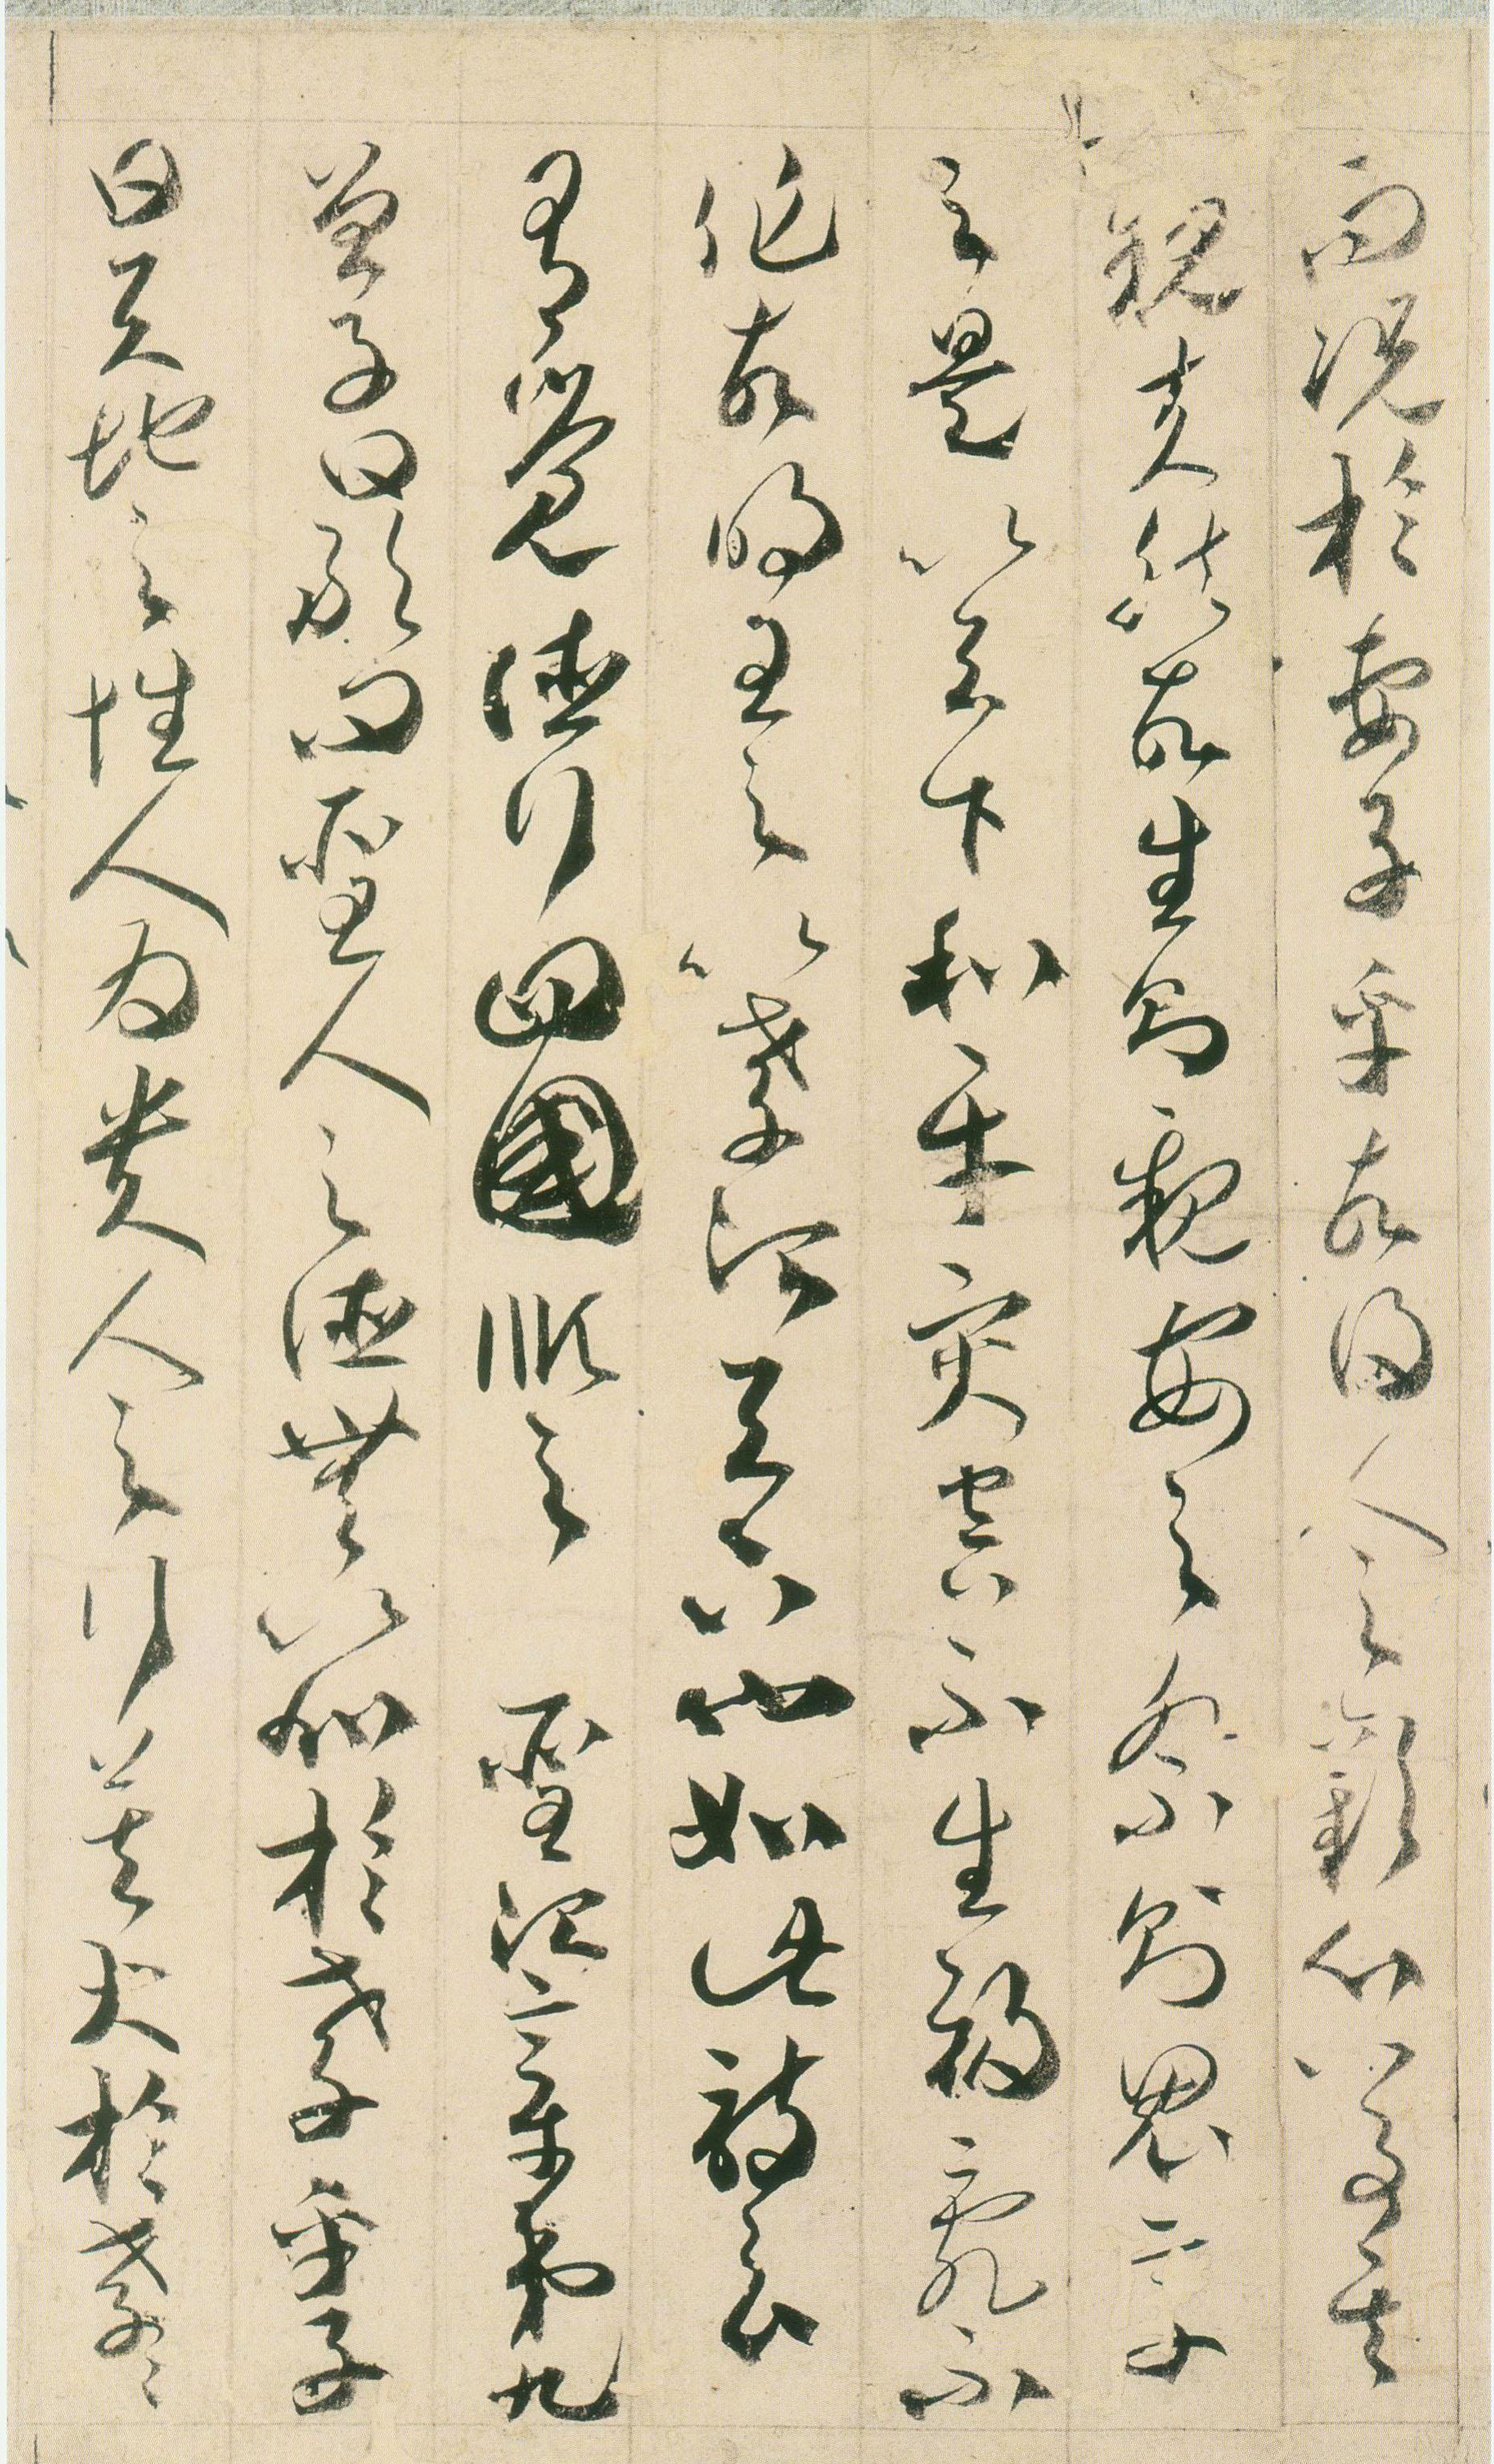 而況於妻子乎故得人之歡心以事其
親夫然故生則親安之祭則鬼享
之是以天下和平災害不生禍亂不
作故明王之以孝治天下也如此詩云
有覺德行四國順之 聖治章第九
曾子曰敢問聖人之德無以加於孝乎子
曰天地之性人為貴人之行莫大於孝〻